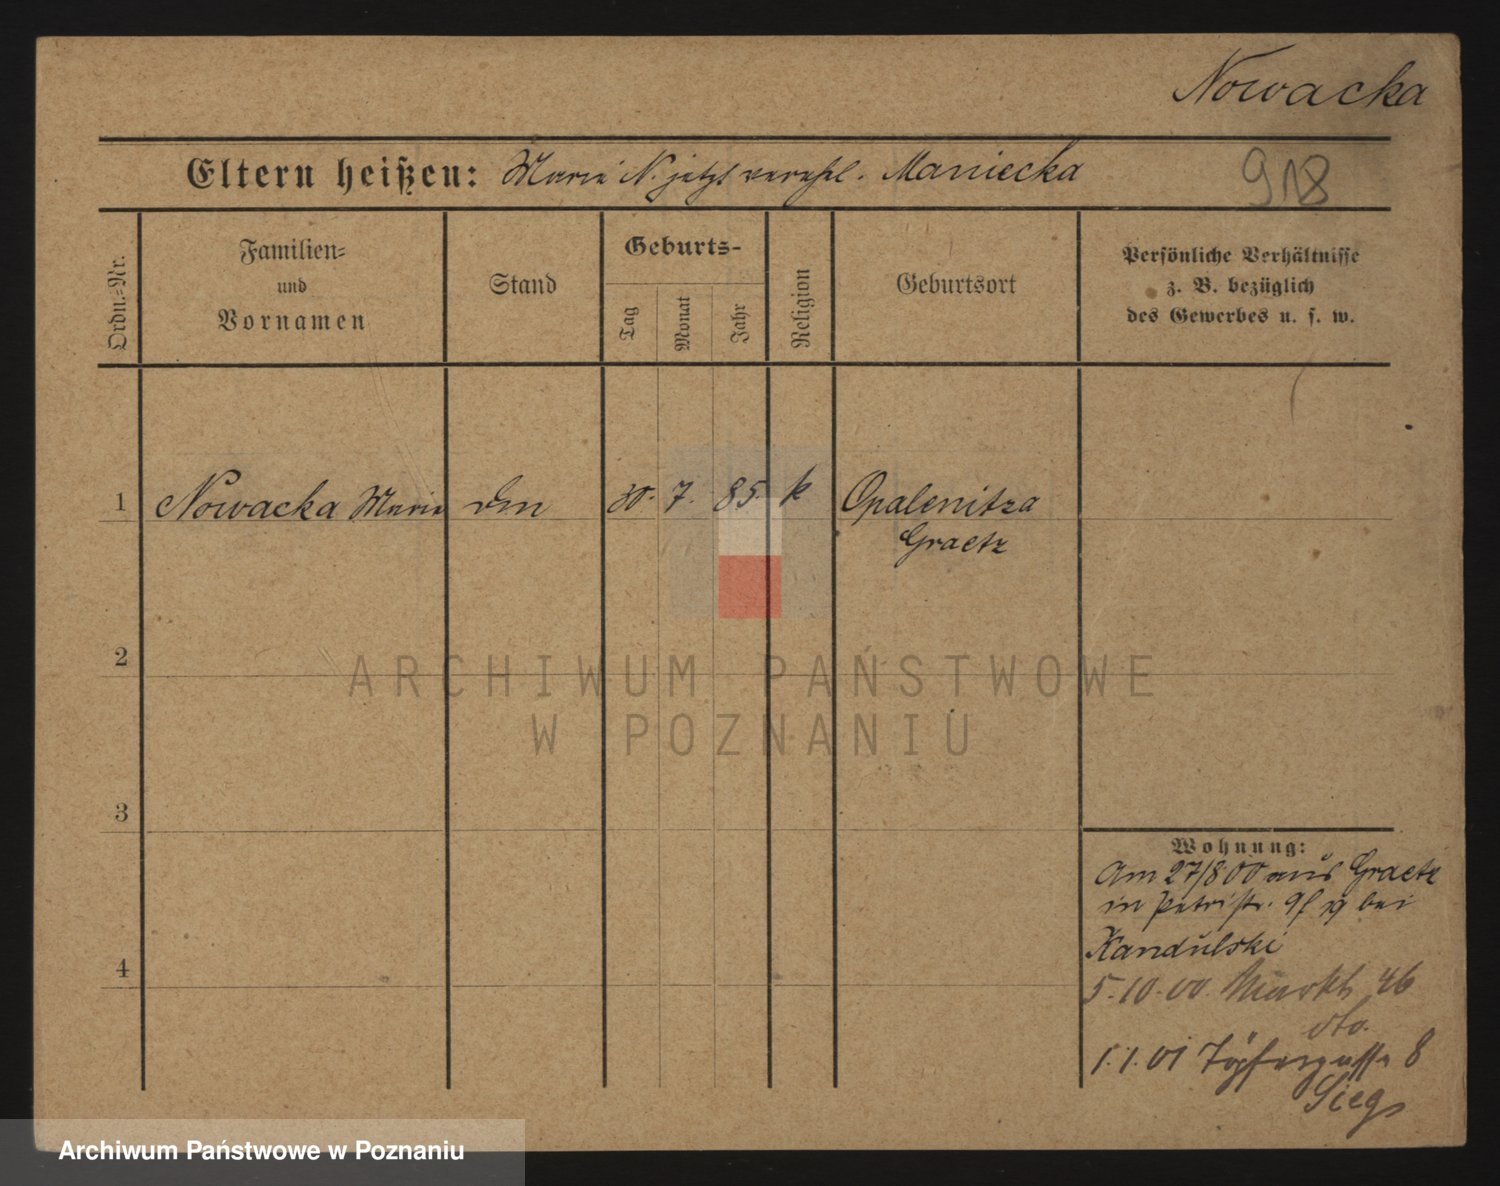 Nowacka
Eltern heißen: Marie N. jetzt verehel. Maniecka
918
Ordn.=Nr.
Familien=
und
Vornamen
Stand
Geburts-
Tag
Monat
Jahr
Religion
Geburtsort
Persönliche Verhältnisse
z. B. bezüglich
des Gewerbes u. s. w.
1 Nowacka Marie 30. 7. 85. k Opalenitza
Graetz
2
3
4
Wohnung:
Am 27/8 00 aus Graetz
in Petristr. 9 bei
Kandulski
5.10.00. Markt 46
dto.
1.1.01 Töpfergasse 8
Sieg
ARCHIWUM PAŃSTWOWE
W POZNANIU
Archiwum Państwowe w Poznaniu